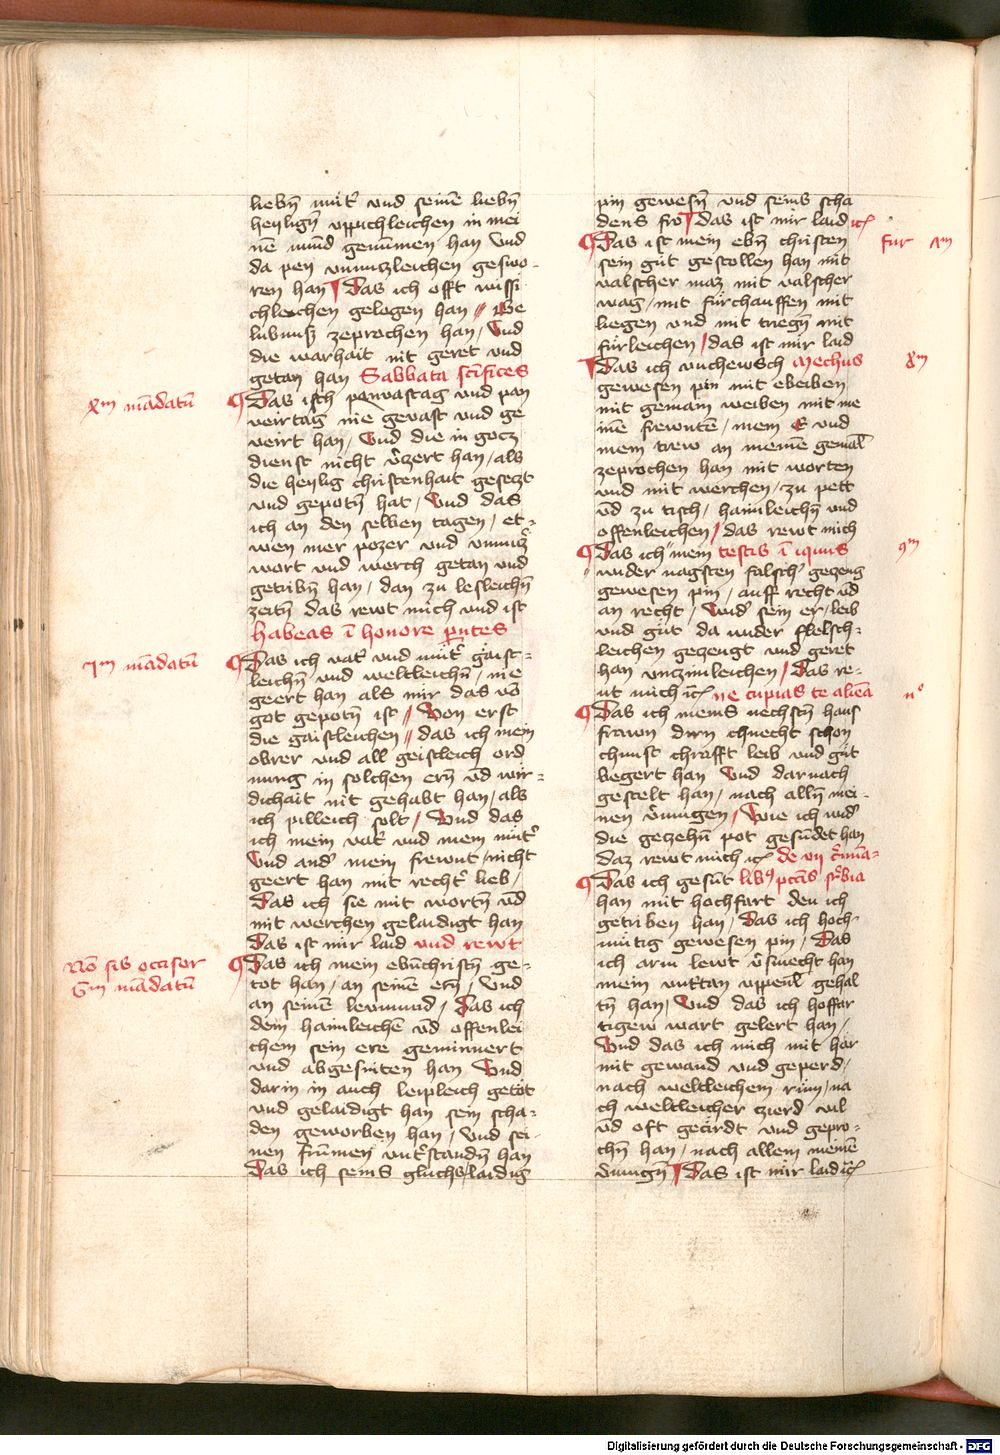 liebñ mut̄ vnd seinē liebñ
heyligñ vppichleichen in mei
nē mund genumen han Vnd
da pey vnnuzleichen geswo-
ren han ¶ Das ich offt wissi
chleichen gelogen han // Ge
lubnuss zeprochen han / Vnd
die warhait nit geret vnd
getan han Sabbata sc̄ifices
mādatū
Das ich panvastag vnd pan
veirtag nie gevast vnd ge
veirt han / Vnd die in gocz
dienst nicht v̄czert han / als
die heylig christenhait gesetzt
vnd gepotñ hat / Vnd das
ich an den selben tagen / et-
wen mer pozer vnd vnnuz̄
wort vnd werch getan vnd
getribñ han / dan zu lesleichñ
zeitñ das rewt mich vnd ist
habeas ī honore pntes
mādatū
Das ich vat̄ vnd mut̄ gaist-
leichñ vnd weltleichñ / nie
geert han als mir das vō
got gepotñ ist // Von erst
die gaistleichen // das ich mein
obrer vnd all geistleich ord
nung in solchen erñ vñd wir-
dichait nit gehabt han / als
ich pilleich solt / Vnd das
ich mein vat̄ vnd mein mut̄
Vnd and̄ mein frewnt / nicht
geert han mit recht̄ lieb /
Das ich sie mit wortñ vñd
mit werchen gelaidigt han
Das ist mir laid vnd rewt
Nō sis occisor
mādatū
Das ich mein ebñchristñ ge-
tot han / an seinē erñ / Vnd
an seinē leymund / Das ich
dem haimleichē vñd offenlei
chem sein ere geminnert
vnd abgesniten han Vnd
darin in auch leipleich getöt
vnd gelaidigt han sein scha-
den geworben han / Vnd sei-
nen frūmen vnt̄standñ han
Das ich seins gluchs / laidig
pin gewesñ vnd seins scha
dens fro ¶ das ist mir laid ꝛc̄
fur
Das ist mein ebñ christen
sein gut gestollen han mit
valscher maz mit valscher
wag / mit fürchauffen mit
liegen vnd mit triegñ mit
fürleichen / das ist mir laid
Das ich vnchewsch Mechus
gewesen pin mit eleiben
mit gemain weiben mit me
inē frewntē / mein E vnd
mein trew an meinē gemāl
zeprochen han mit worten
vnd mit werchen / zu pett
vñd zu tisch / haimleichñ vnd
offenleichen / das rewt mich
Das ich mein testis ī iquus
wider nagsten falsch̄ gezeug
gewesen pin / auff recht vñd
an recht / Wid̄ sein er / leib
vnd gut da wider flelsch-
leichen gezeugt vnd geret
han vnzimleichen / Das re-
ut mich ꝛc̄ ne cupias te aliēa
Das ich meins nechstñ haus
frawn dirn chnecht schon
chunst chrafft leib vnd gut
begert han Vnd darnach
gestelt han / nach allñ mei-
nen v̄mugen / Wie ich wid̄
die gezehñ pot gesūdet han
daz rewt mich ꝛc̄ de vij c̄minā-
Das ich gesūt
han mit hochfart den ich
getriben han / Das ich hoch-
mütig gewesen pin / Das
ich arm lewt v̄smecht han
mein vntt̄an vppeñl gehal
tñ han / Vnd das ich hoffar
tigew wart gelert han /
Vnd das ich mich mit har
mit gewand vnd geperd /
nach weltleichem rūm / na
ch weltleicher zierd vil
vñd oft gezirdt vnd gepro-
chñ han / nach allem meinē
v̄mugñ ¶ Das ist mir laid ꝛc̄
Digitalisierung gefördert durch die Deutsche Forschungsgemeinschaft - DFG